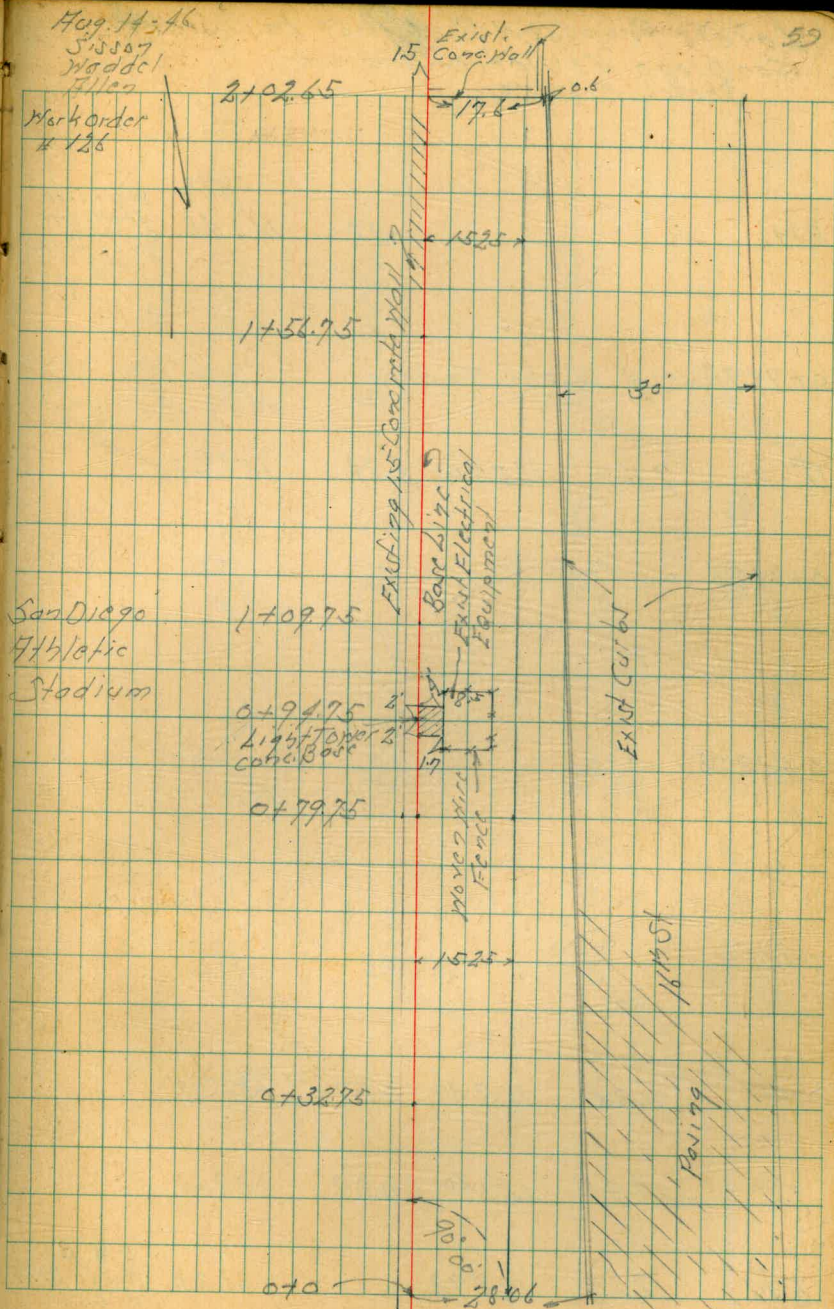 Aug. 14-46
Sisson
Waddel
Allen
Work order
# 126
59
Exist.
Conc. Wall
15
2+02.65
17.6
0.6
15.25
1+56.75
Existing 1.5' Concrete Wall
30'
Base Line
Exist Electrical
Equipment
San Diego
Athletic
Stadium
1+09.75
0+94.75
Light Tower
conc. Base
2'
2'
Exist Curbs
0+79.75
Woven Wire
Fence
15.25
16th St
Paving
0+32.75
90° 00'
0+0
28.06